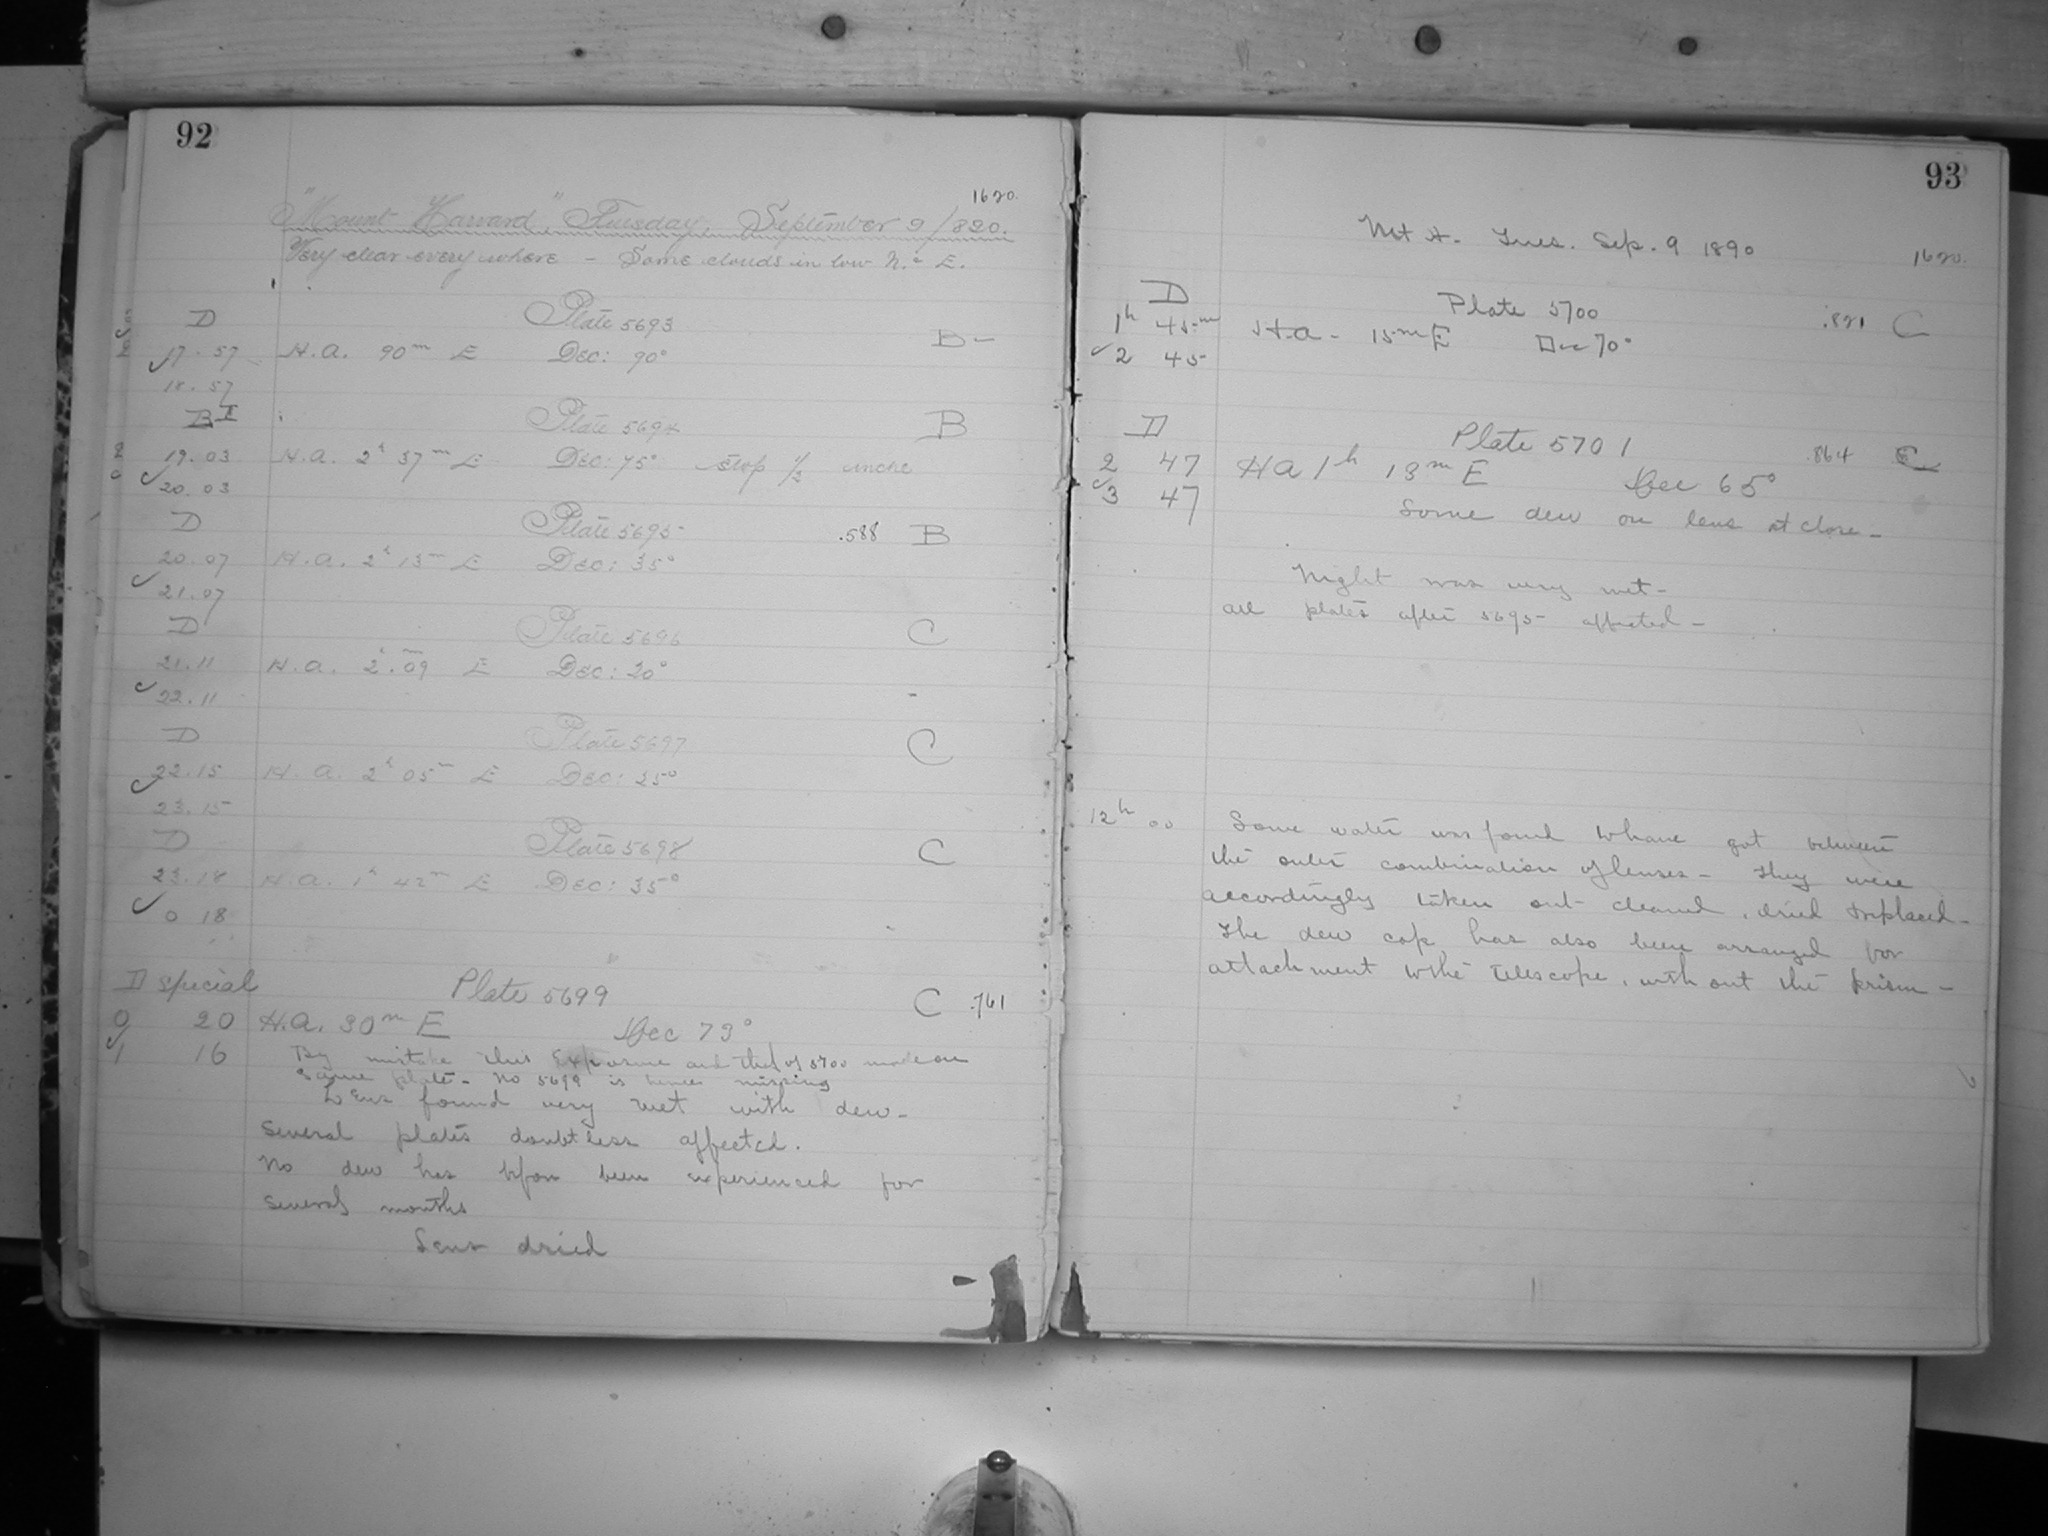 92
1620.
"Mount Harvard" Tuesday, September 9/820.
Very clear every where - Some clouds in low N. & E.
D Plate 5693 B-
17.57 H.A. 90m E Dec: 90°
18.57
Plate 5694 B
19.03 H.A. 2h 37m E Dec: 75° stop 1/2 inche
20.03
D Plate 5695 .588 B
20.07 H.A. 2h 13m E Dec: 35°
21.07
D Plate 5696 C
21.11 H.A. 2h.09m E Dec: 20°
22.11
D Plate 5697 C
22.15 H.A. 2h 05m E Dec: 25°
23.15
D Plate 5698 C
23.18 H.A. 1h 42m E Dec: 35°
0 18
D special Plate 5699 C .761
0 20 H.A. 30m E Dec 73°
1 16 By mistake this Exposure and that of 5700 made on
same plate - No 5699 is hence missing
Lens found very wet with dew -
Several plates doubtless affected.
No dew has before been experienced for
several months
Lens dried
93
Mt H. Tues. Sep. 9 1890
1620.
D Plate 5700 .821 C
1h 45m H.A - 15m E Dec 70°
2 45
D Plate 5701 .864 C
2 47 HA 1h 13m E Dec 65°
3 47 Some dew on lens at close -
Night was very wet -
all plates after 5695 affected -
12h 00 Some water was found to have got between
the outer combination of lenses - They were
accordingly taken out cleaned, dried & replaced -
The dew cap has also been arranged for
attachment to the telescope, without the prism -